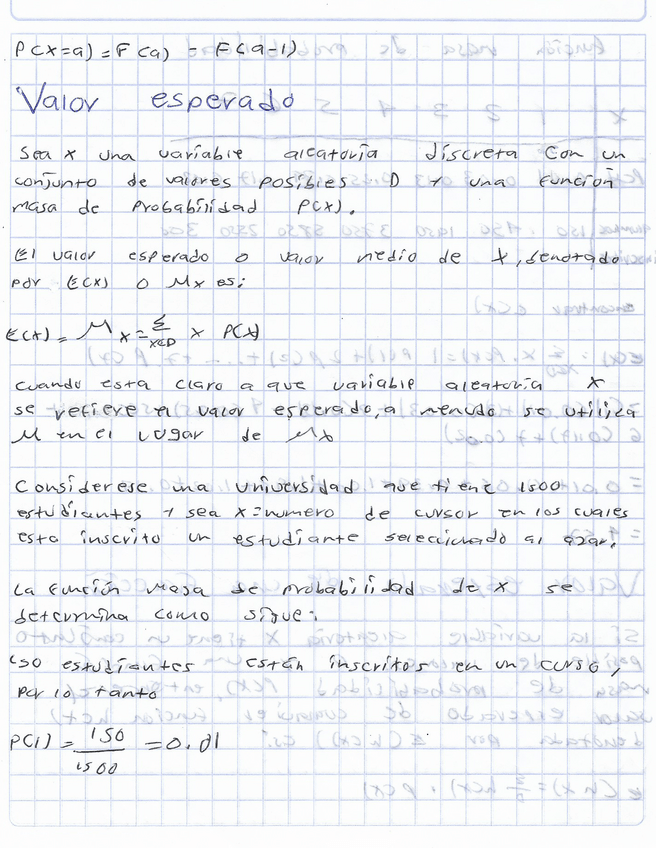 P(X=a) = F(a) - F(a-1)
Valor esperado
Sea x una variable aleatoria discreta con un
conjunto de valores posibles D y una función
masa de probabilidad p(x).
El valor esperado o valor medio de X, denotado
por E(x) o Mx es:
E(x) = Mx = Σ x∈D x P(x)
cuando esta claro a que variable aleatoria X
se refiere el valor esperado, a menudo se utiliza
M en el lugar de Mx
Considerese una universidad que tiene 1500
estudiantes y sea x=numero de cursor en los cuales
esta inscrito un estudiante seleccionado al azar.
La función masa de probabilidad de x se
determina como sigue:
150 estudiantes están inscritos en un curso,
por lo tanto
P(1) = 150/1500 = 0.01